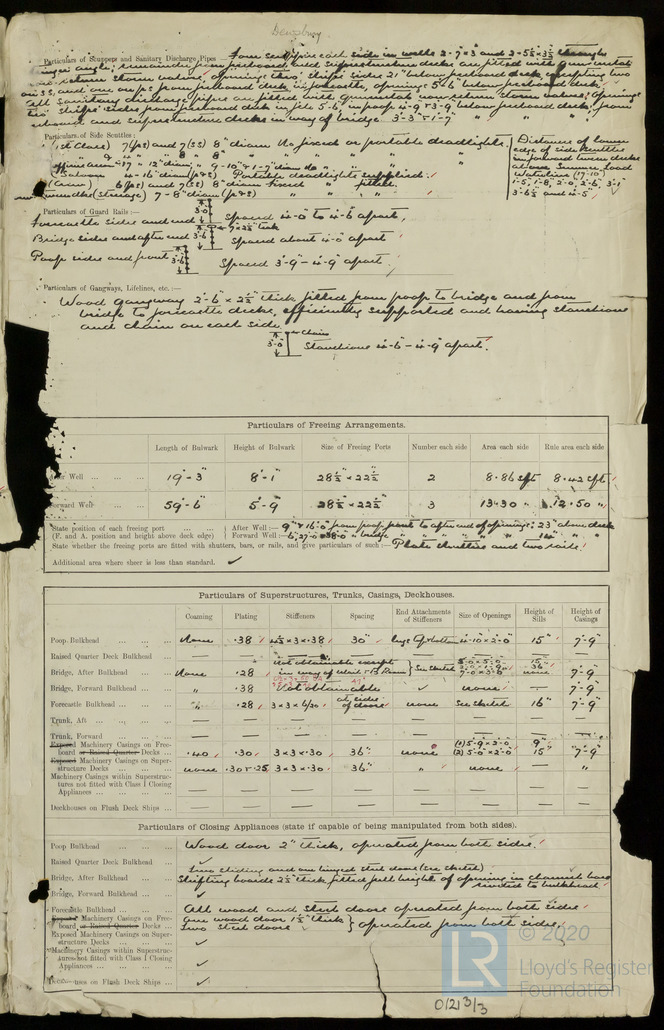 Dewsbury
Particulars of Scuppers and Sanitary Discharge Pipes — Four scuppers each side in wells 2-7×3 and 2-5½×3½ through
freeboard and superstructure decks are fitted with gunmetal
storm valves, openings thro' ships sides 21" below freeboard deck, excepting two
on SS, and one on ps from freeboard deck in forecastle, openings 5'-6" below freeboard deck,
All sanitary discharge pipes are fitted with gunmetal non return storm valves, openings
thro' ships' sides from freeboard deck in fcle 5'-6", in poop 4'-9" & 3'-9" below freeboard deck, from
and superstructure decks in way of bridge 3'-3" & 1'-7"
Particulars of Side Scuttles:—
(1st Class) 7(ps) and 7(ss) 8" diam No fixed or portable deadlights.
17 – 12" diam 9 – 10" & 1 – 7" diam No
Saloon 4 – 16" diam (p&s) Portable deadlights supplied.
(Crew) 6(ps) and 7(ss) 8" diam fixed " fitted.
(Steerage) 7 – 8" diam (p&s) " " "
Distances of lower
edge of side scuttles
in forward tween decks
above Summer Load
Waterline (17'-10")
1-5, 1-8, 2-0, 2-6, 3-1
3-6½ and 4-5
Particulars of Guard Rails:—
Forecastle sides and end 3'-0" Spaced 4'-0" to 4'-6" apart
Bridge sides and after end 3'-6" Spaced about 4'-0" apart
Poop sides and front 3'-6" Spaced 3'-9" – 4'-9" apart
Particulars of Gangways, Lifelines, etc.:—
Wood gangway 2'-6" × 2½" thick fitted from poop to bridge and from
bridge to forecastle decks, efficiently supported and having stanchions
and chain on each side.
Chain
3'-0" Stanchions 4'-6" – 4'-9" apart.
Particulars of Freeing Arrangements.
Length of Bulwark Height of Bulwark Size of Freeing Ports Number each side Area each side Rule area each side
After Well 19'-3" 8'-1" 28½" × 22½" 2 8.86 sq ft 8.42 sq ft
Forward Well 59'-6" 5'-9 28½" × 22½" 3 13.30 " 12.50 "
State position of each freeing port (F. and A. position and height above deck edge)
After Well:— 9" & 16'-0" from poop front to after end of openings; 23" above deck
Forward Well:— 6', 27'-0" & 38'-0" " bridge " " " " " "
State whether the freeing ports are fitted with shutters, bars, or rails, and give particulars of such:— Plate shutters and two rails
Additional area where sheer is less than standard. ✓
Particulars of Superstructures, Trunks, Casings, Deckhouses.
Coaming Plating Stiffeners Spacing End Attachments of Stiffeners Size of Openings Height of Sills Height of Casings
Poop Bulkhead None .38 4½ × 3 × .38 30" lugs top & bottom 4-10 × 2-0 15" 7-9
Raised Quarter Deck Bulkhead — — — — — — — —
Bridge, After Bulkhead None .28 Not obtainable except in way of See Sketch 5-0 × 5-0 7-0 × 3-6 15" none 7-9
Bridge, Forward Bulkhead " .38 Not obtainable ✓ none — 7-9
Forecastle Bulkhead " .28 3 × 3 × 6/20 at sides of doors none See Sketch 16" 7-9
Trunk, Aft — — — — — — — —
Trunk, Forward — — — — — — — —
Exposed Machinery Casings on Freeboard or Raised Quarter Decks .40 .30 3 × 3 × .30 36" none (1) 5-9 × 2-0 (2) 5-0 × 2-0 9" 15" 7-9
Exposed Machinery Casings on Superstructure Decks none .30 & .25 3 × 3 × .30 36" " none — "
Machinery Casings within Superstructures not fitted with Class I Closing Appliances — — — — — — — —
Deckhouses on Flush Deck Ships — — — — — — — —
Particulars of Closing Appliances (state if capable of being manipulated from both sides).
Poop Bulkhead Wood door 2" thick, operated from both sides.
Raised Quarter Deck Bulkhead ✓
Bridge, After Bulkhead Two sliding and one hinged steel doors (see sketch)
Shifting boards 2½" thick fitted full height of opening in channel bars riveted to bulkhead
Bridge, Forward Bulkhead ✓
Forecastle Bulkhead All wood and steel doors operated from both sides
Exposed Machinery Casings on Freeboard or Raised Quarter Decks One wood door 1½" thick Two steel doors } operated from both sides
Exposed Machinery Casings on Superstructure Decks ✓
Machinery Casings within Superstructures not fitted with Class I Closing Appliances ✓
Deckhouses on Flush Deck Ships ✓
© 2020
LR Lloyd's Register
Foundation
0121313